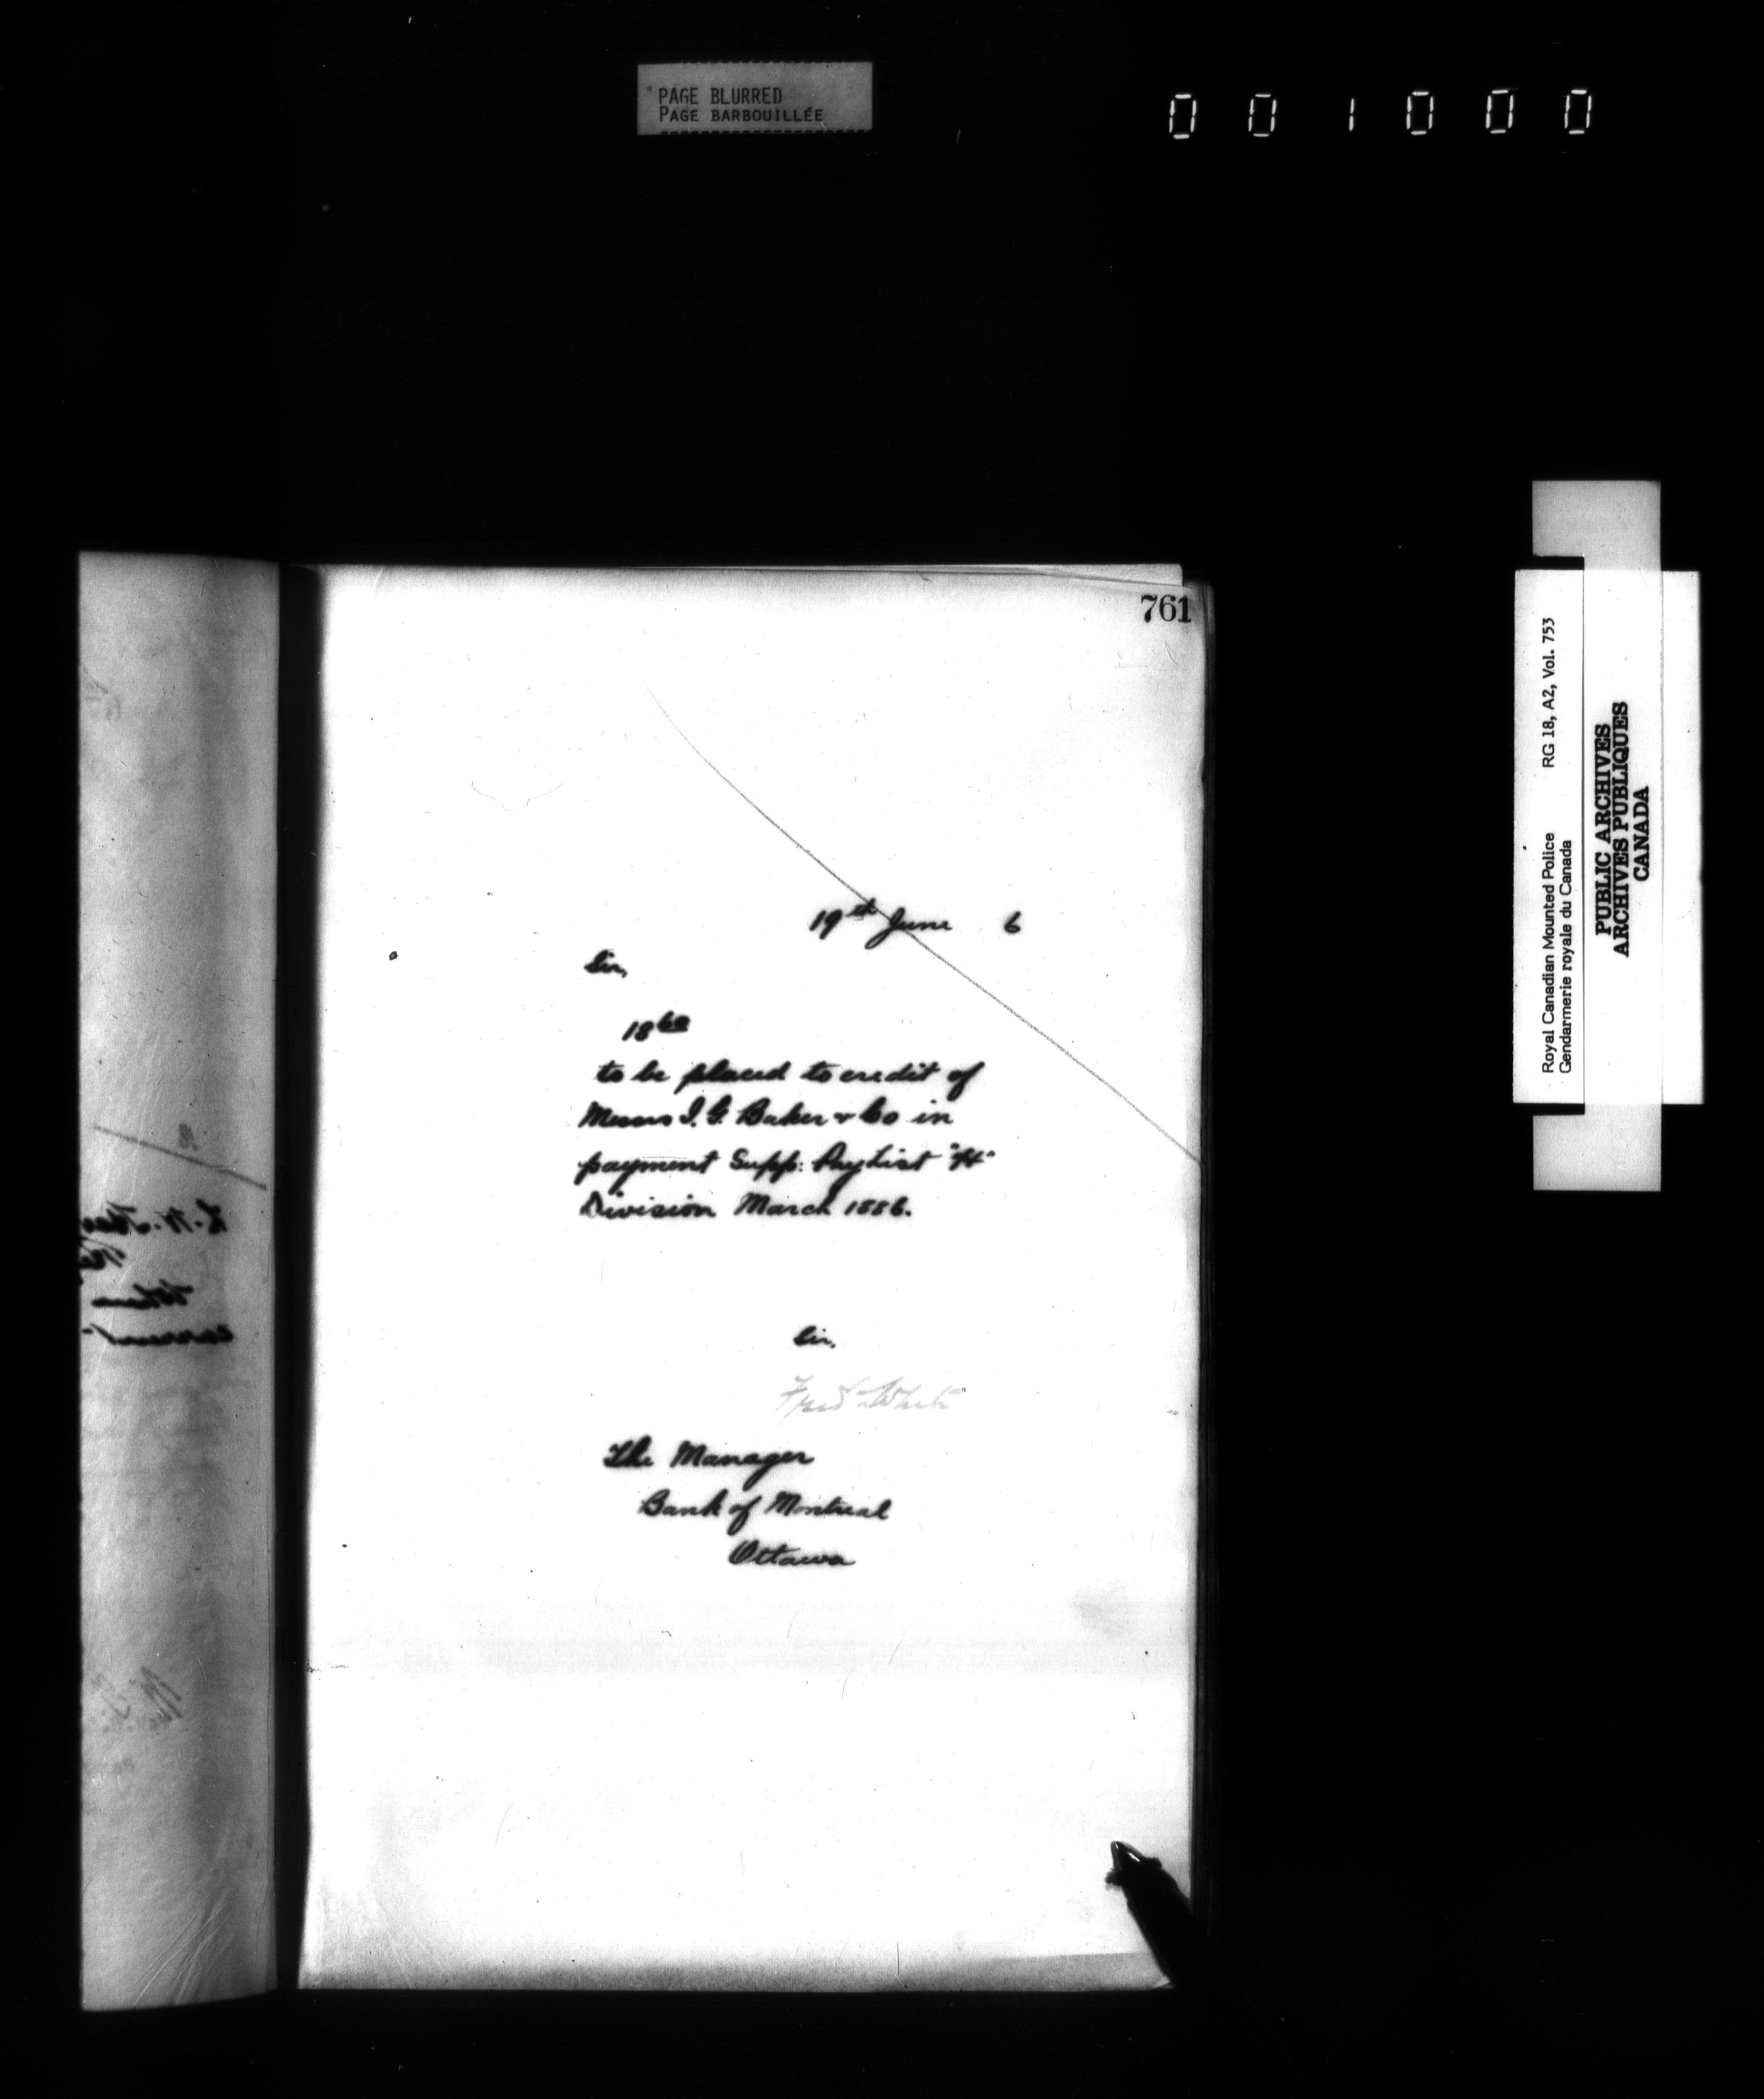 PAGE BLURRED
PAGE BARBOUILLÉE
001000
761
19th June 6
Sir,
18 60
to be placed to credit of
Messrs I. G. Baker & Co in
payment Supp: Pay List "H"
Division March 1886.
Sir,
Fred White
The Manager
Bank of Montreal
Ottawa
Royal Canadian Mounted Police RG 18, A2, Vol. 753
Gendarmerie royale du Canada
PUBLIC ARCHIVES
ARCHIVES PUBLIQUES
CANADA